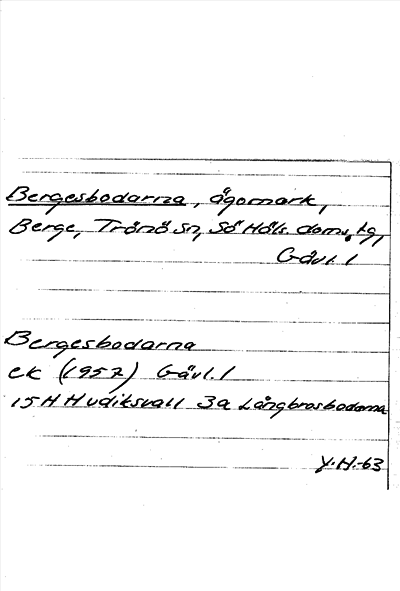 Bergesbodarna, ägomark,
Berge, Trönö sn, Sö Häls. doms.tg,
Gävl. l
Bergesbodarna
ek (1957) Gävl. l
15 H Hudiksvall 3a Långbrosbodarna
Y.H.-63